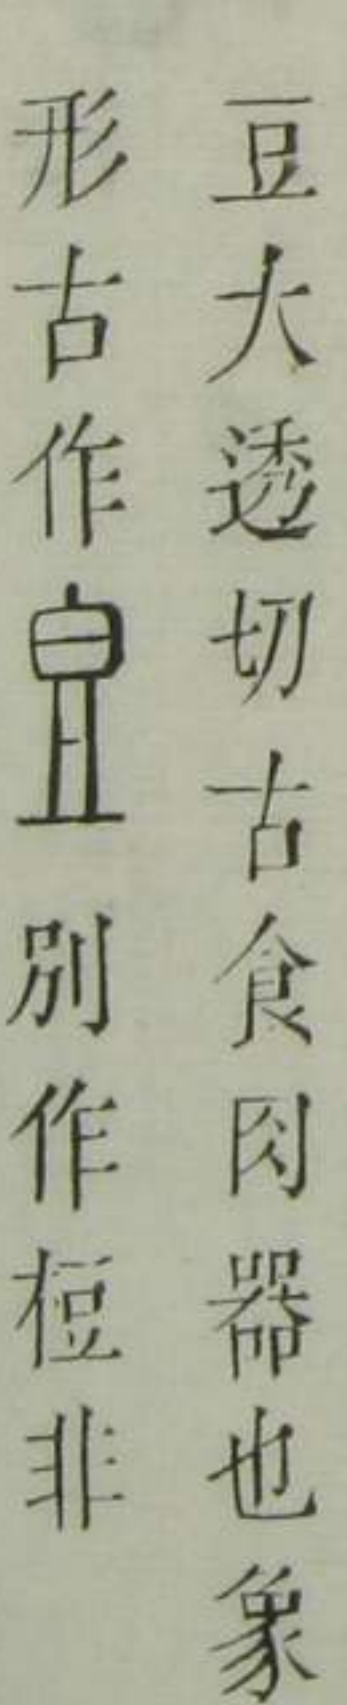 豆大透切古食肉器也象
形古作別作梪非